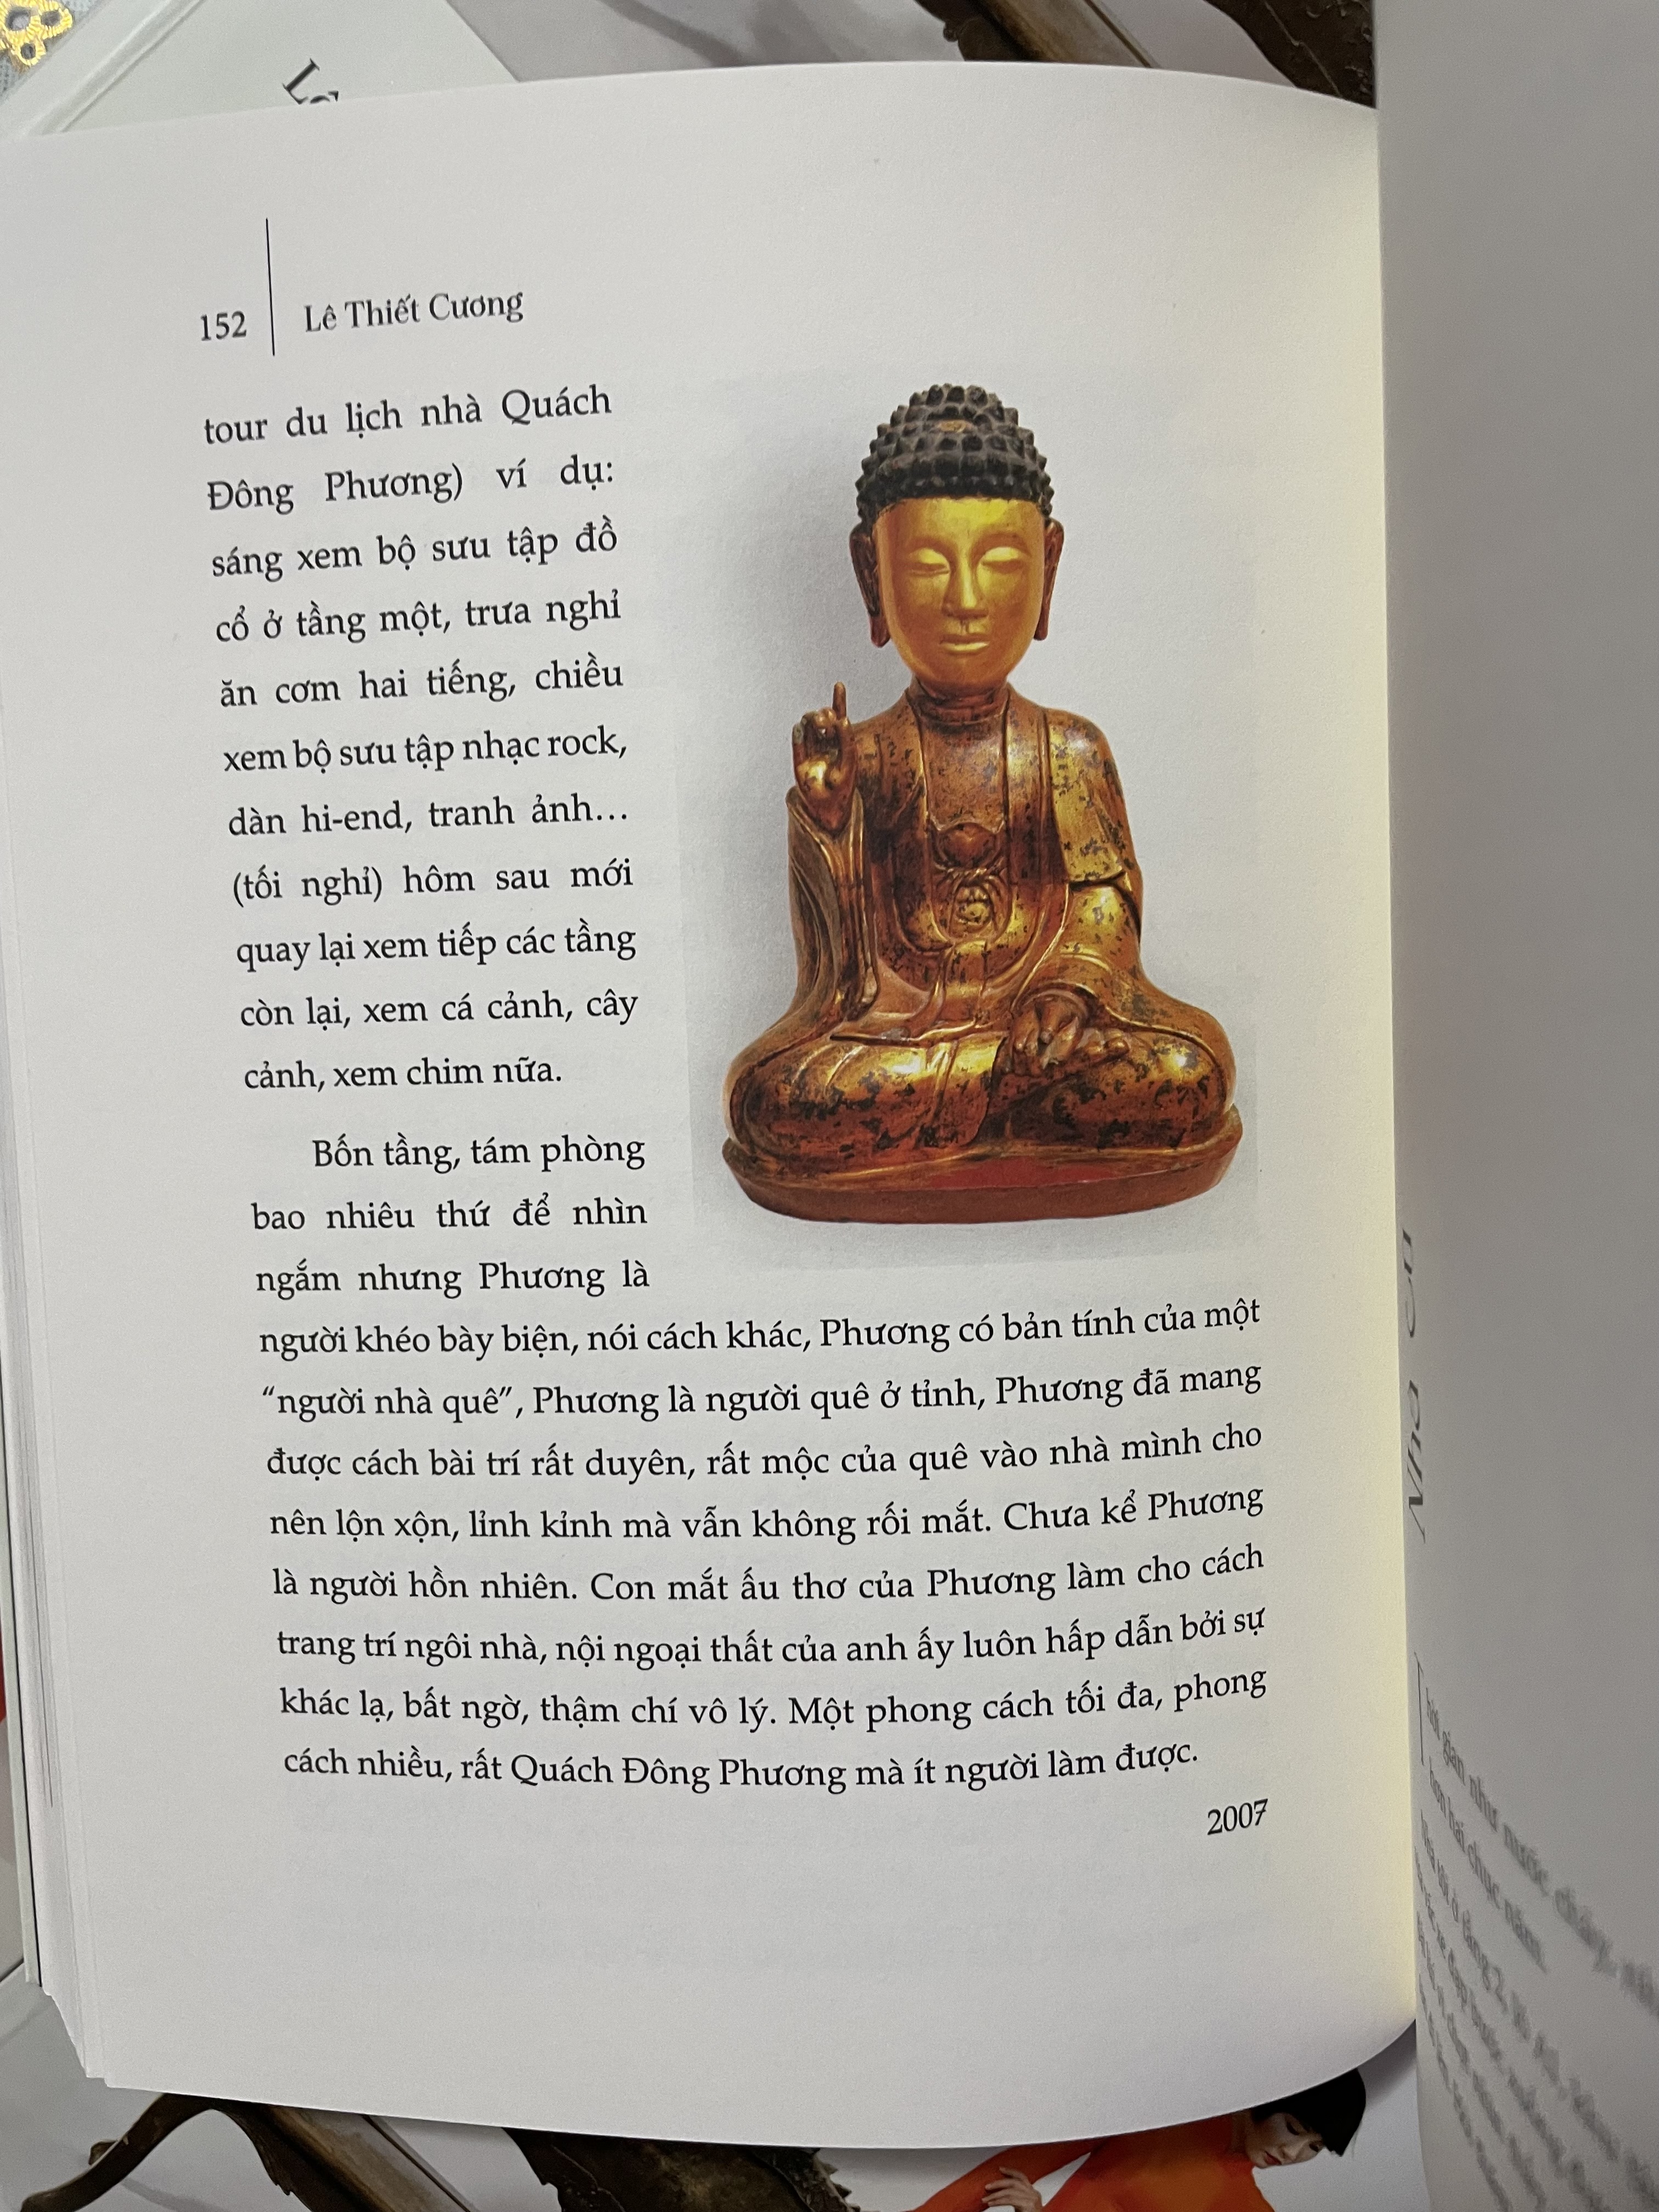 152
Lê Thiết Cương
tour du lịch nhà Quách
Đông Phương) ví dụ:
sáng xem bộ sưu tập đồ
cổ ở tầng một, trưa nghỉ
ăn cơm hai tiếng, chiều
xem bộ sưu tập nhạc rock,
dàn hi-end, tranh ảnh...
(tối nghỉ) hôm sau mới
quay lại xem tiếp các tầng
còn lại, xem cá cảnh, cây
cảnh, xem chim nữa.
Bốn tầng, tám phòng
bao nhiêu thứ để nhìn
ngắm nhưng Phương là
người khéo bày biện, nói cách khác, Phương có bản tính của một
“người nhà quê”, Phương là người quê ở tỉnh, Phương đã mang
được cách bài trí rất duyên, rất mộc của quê vào nhà mình cho
nên lộn xộn, lỉnh kỉnh mà vẫn không rối mắt. Chưa kể Phương
là người hồn nhiên. Con mắt ấu thơ của Phương làm cho cách
trang trí ngôi nhà, nội ngoại thất của anh ấy luôn hấp dẫn bởi sự
khác lạ, bất ngờ, thậm chí vô lý. Một phong cách tối đa, phong
cách nhiều, rất Quách Đông Phương mà ít người làm được.
2007
gian như nước chảy,
hơn hai chục năm.